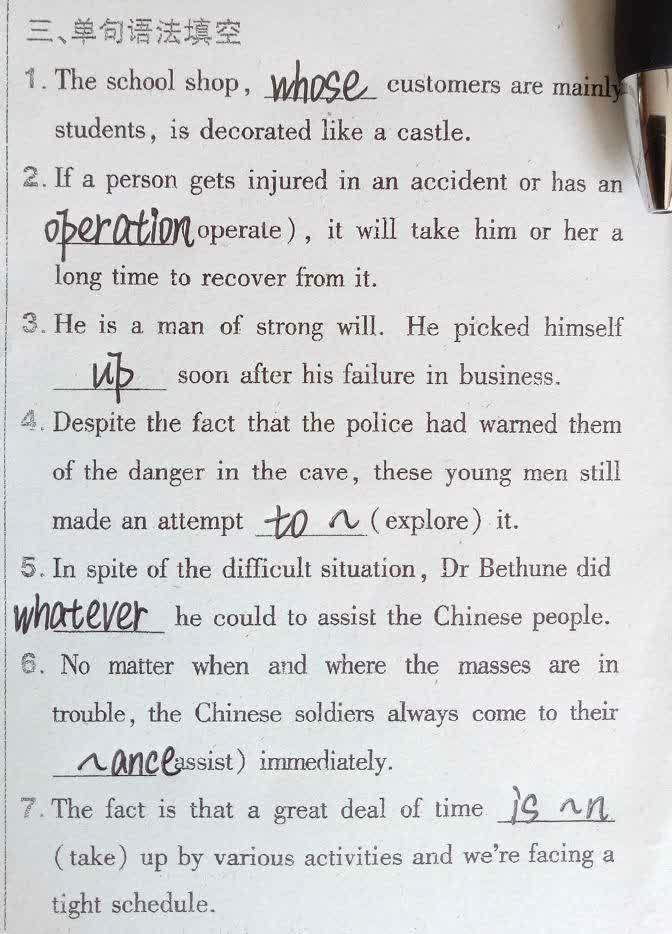 三、单句语法填空
1. The school shop, whose customers are mainly
students, is decorated like a castle.
2. If a person gets injured in an accident or has an
operation operate), it will take him or her a
long time to recover from it.
3. He is a man of strong will. He picked himself
up soon after his failure in business.
4. Despite the fact that the police had warned them
of the danger in the cave, these young men still
made an attempt to ~ (explore) it.
5. In spite of the difficult situation, Dr Bethune did
whatever he could to assist the Chinese people.
6. No matter when and where the masses are in
trouble, the Chinese soldiers always come to their
~ance assist) immediately.
7. The fact is that a great deal of time is ~n
(take) up by various activities and we're facing a
tight schedule.